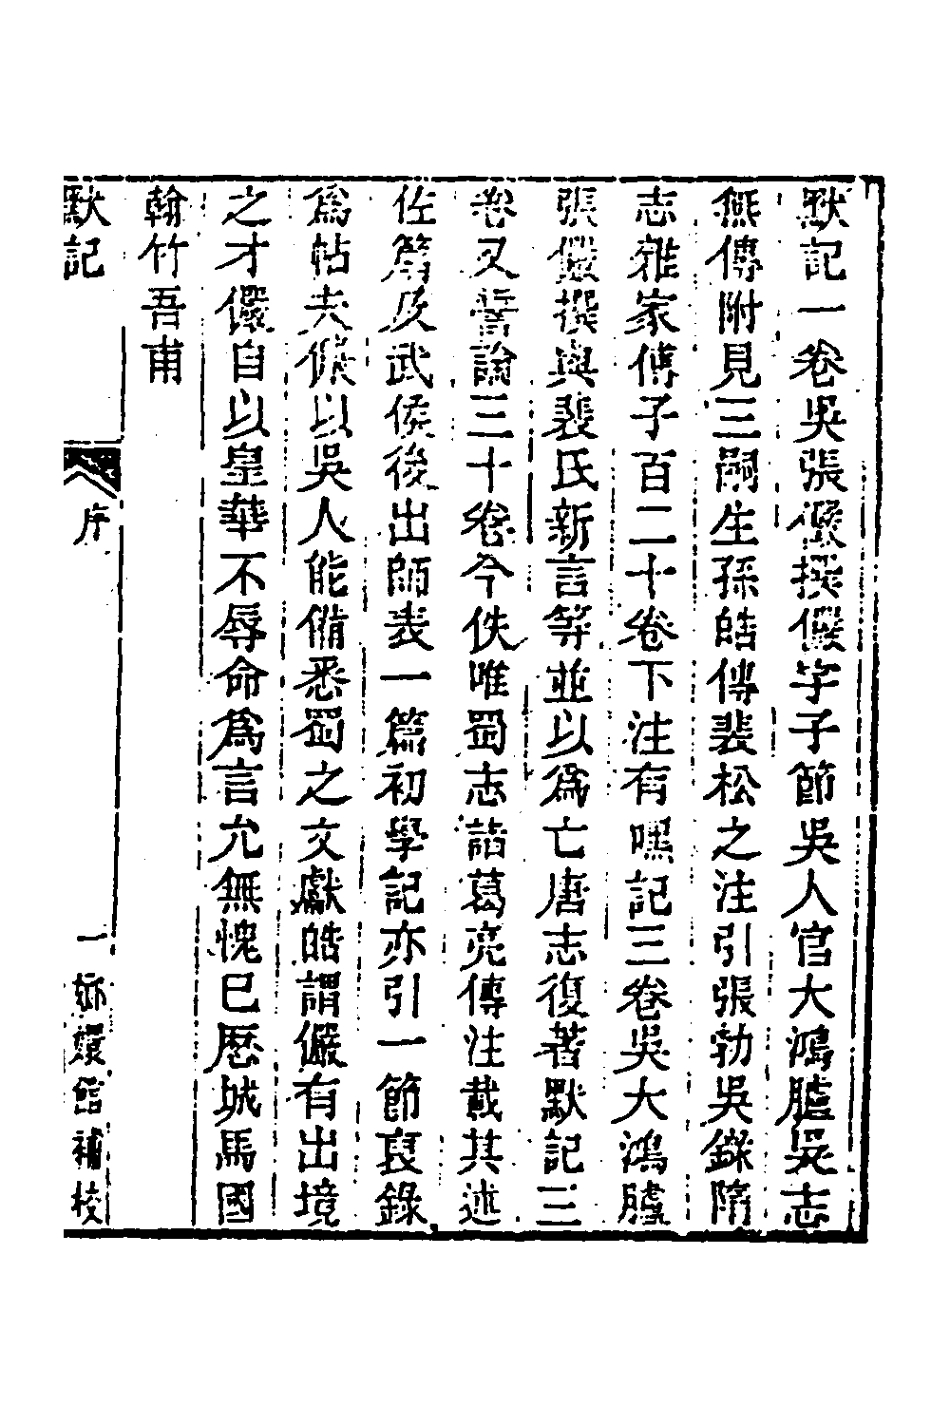 默記一卷吳張儼撰儼字子節吳人官大鴻臚吳志
無傳附見三嗣生孫皓傳裴松之注引張勃吳錄隋
志雜家傅子百二十卷下注有嘿記三卷吳大鴻臚
張儼撰與裴氏新言等並以爲亡唐志復著默記三
卷又誓論三十卷今佚唯蜀志諸葛亮傳注載其述
佐篇及武侯後出師表一篇初學記亦引一節裒錄
爲帖夫儼以吳人能備悉蜀之文獻皓謂儼有出境
之才儼自以皇華不辱命爲言允無愧已厯城馬國
翰竹吾甫
默記
序
一
嫏嬛館補校